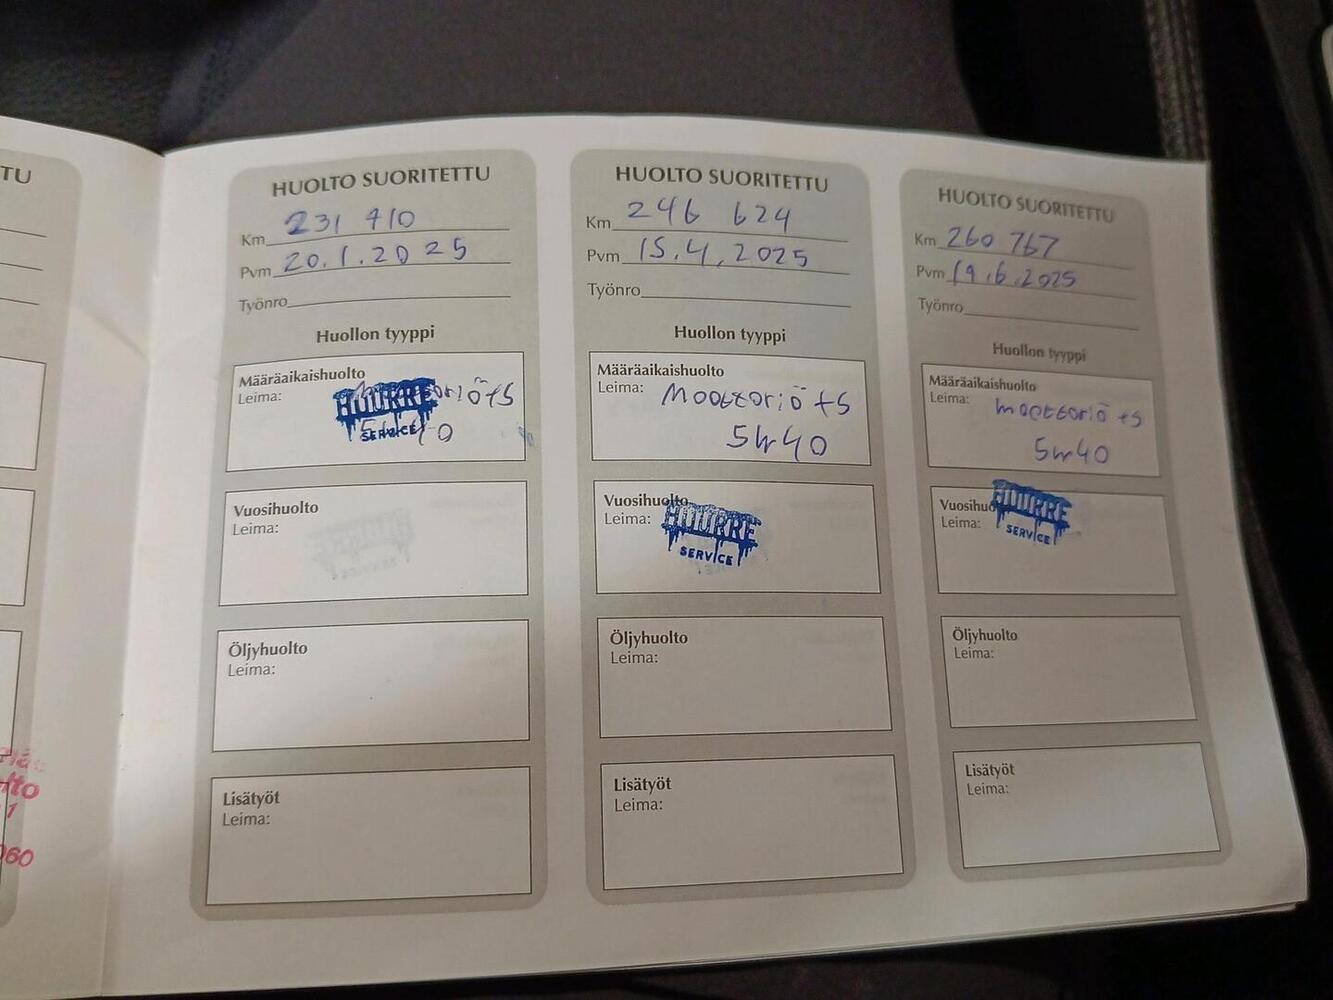 TU
HUOLTO SUORITETTU
Km 231 710
Pvm 20.1.2025
Työnro
Huollon tyyppi
Määräaikaishuolto
Leima:
HUURRE
SERVICE
Vuosihuolto
Leima:
Öljyhuolto
Leima:
Lisätyöt
Leima:
HUOLTO SUORITETTU
Km 246 624
Pvm 15.4.2025
Työnro
Huollon tyyppi
Määräaikaishuolto
Leima: moottoriö +s
5w40
Vuosihuolto
Leima:
HUURRE
SERVICE
Öljyhuolto
Leima:
Lisätyöt
Leima:
HUOLTO SUORITETTU
Km 260 767
Pvm 19.6.2025
Työnro
Huollon tyyppi
Määräaikaishuolto
Leima: moottoriö +s
5w40
Vuosihuo
Leima:
HUURRE
SERVICE
Öljyhuolto
Leima:
Lisätyöt
Leima: